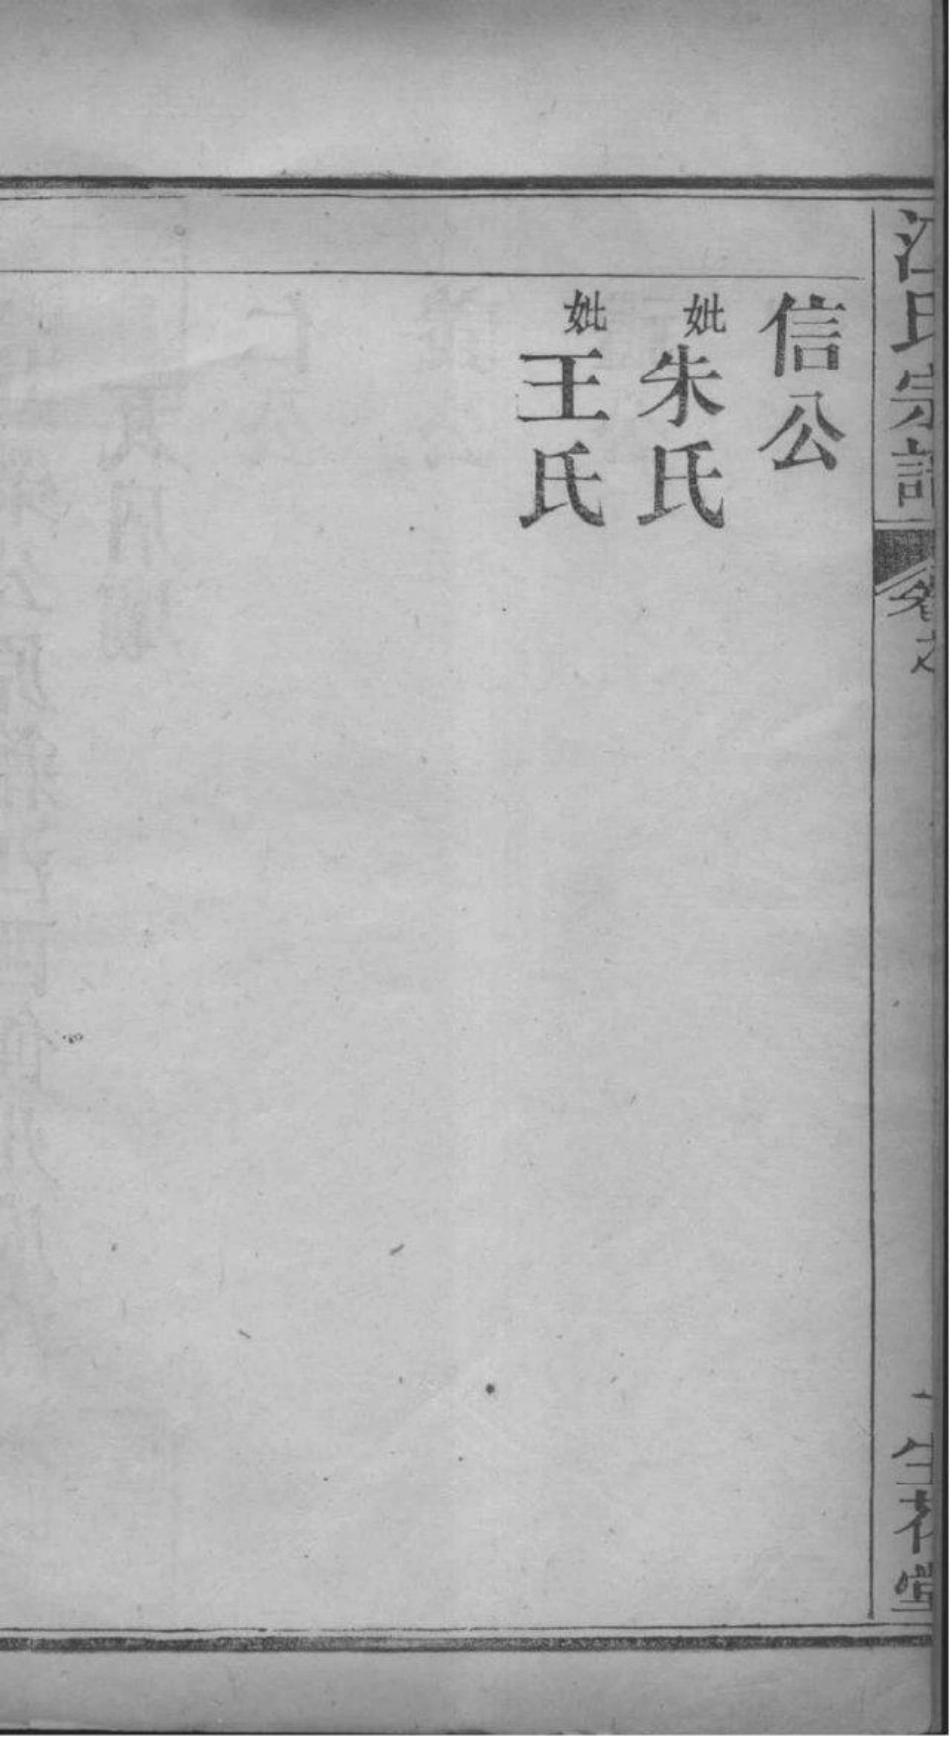 江氏宗譜
卷之
一
生花堂
信公
妣朱氏
妣王氏